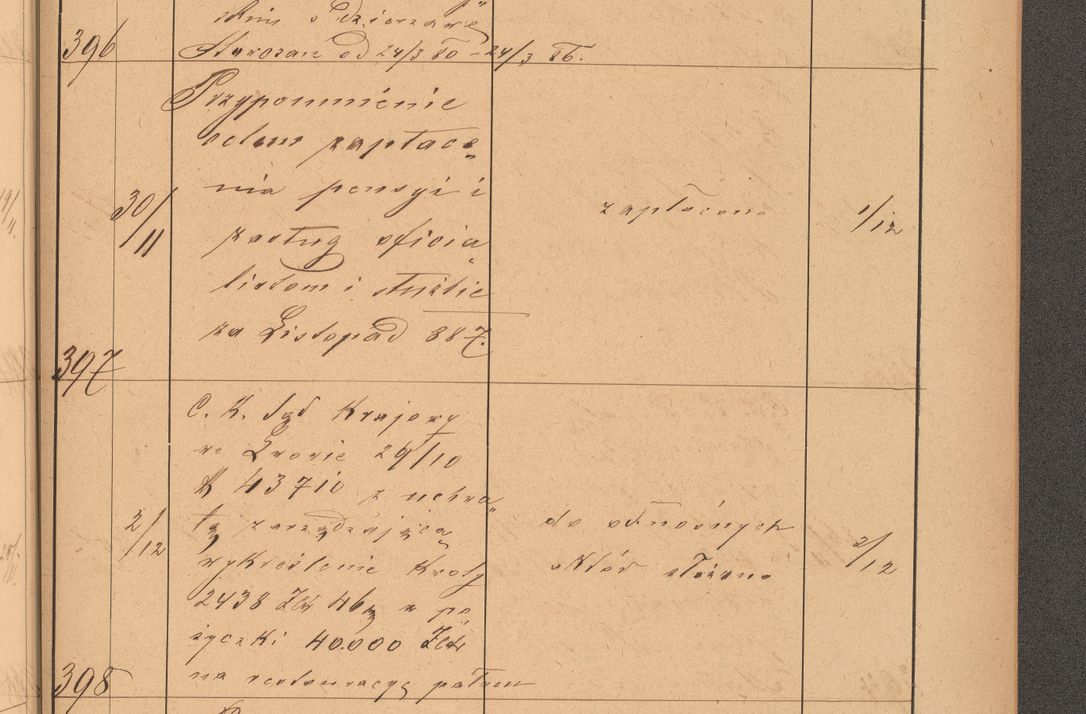 skim z dzierżawy
396 Starozan od 24/3 80 - 24/3 86.
Przypomnienie
celem zapłace„
nia pensyi i
30/11 zasług oficia„ zapłacono 1/12
listom i służbie
za Listopad 887.
397
C. K. Sąd Krajowy
we Lwowie 29/10
N 43710 z uchwa„
2/12 łą zarządzającą do odnośnych 2/12
wykreślenie kwoty aktów złożono
2438 Złr 46 z po„
życzki 40.000 Złr
398 na restauracyę pałacu